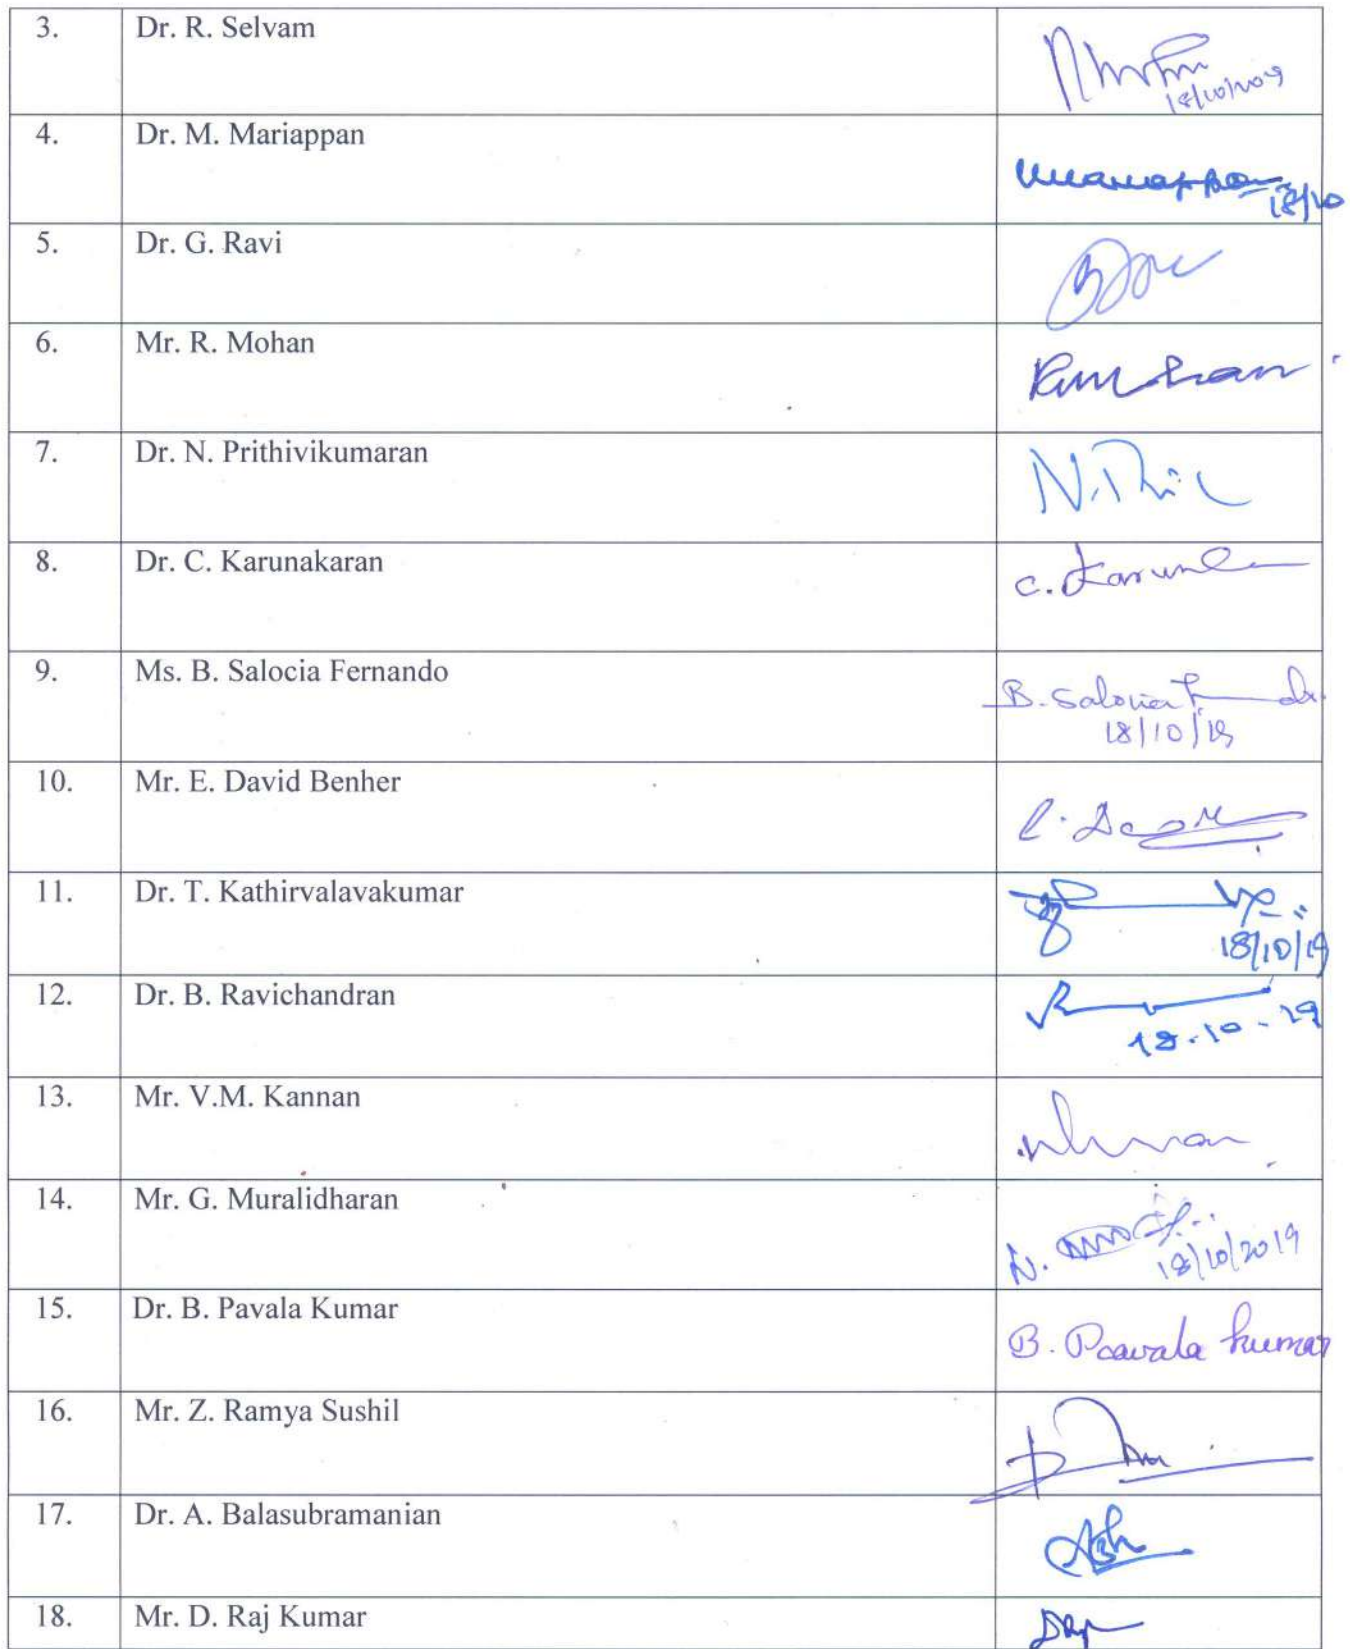 3. Dr. R. Selvam
18/10/2019
4. Dr. M. Mariappan
18/10
5. Dr. G. Ravi
6. Mr. R. Mohan
7. Dr. N. Prithivikumaran
8. Dr. C. Karunakaran
C.
9. Ms. B. Salocia Fernando
B. Salocia
18/10/19
10. Mr. E. David Benher
11. Dr. T. Kathirvalavakumar
18/10/19
12. Dr. B. Ravichandran
18.10.19
13. Mr. V.M. Kannan
14. Mr. G. Muralidharan
18/10/2019
15. Dr. B. Pavala Kumar
B. Paavala Kumar
16. Mr. Z. Ramya Sushil
17. Dr. A. Balasubramanian
18. Mr. D. Raj Kumar